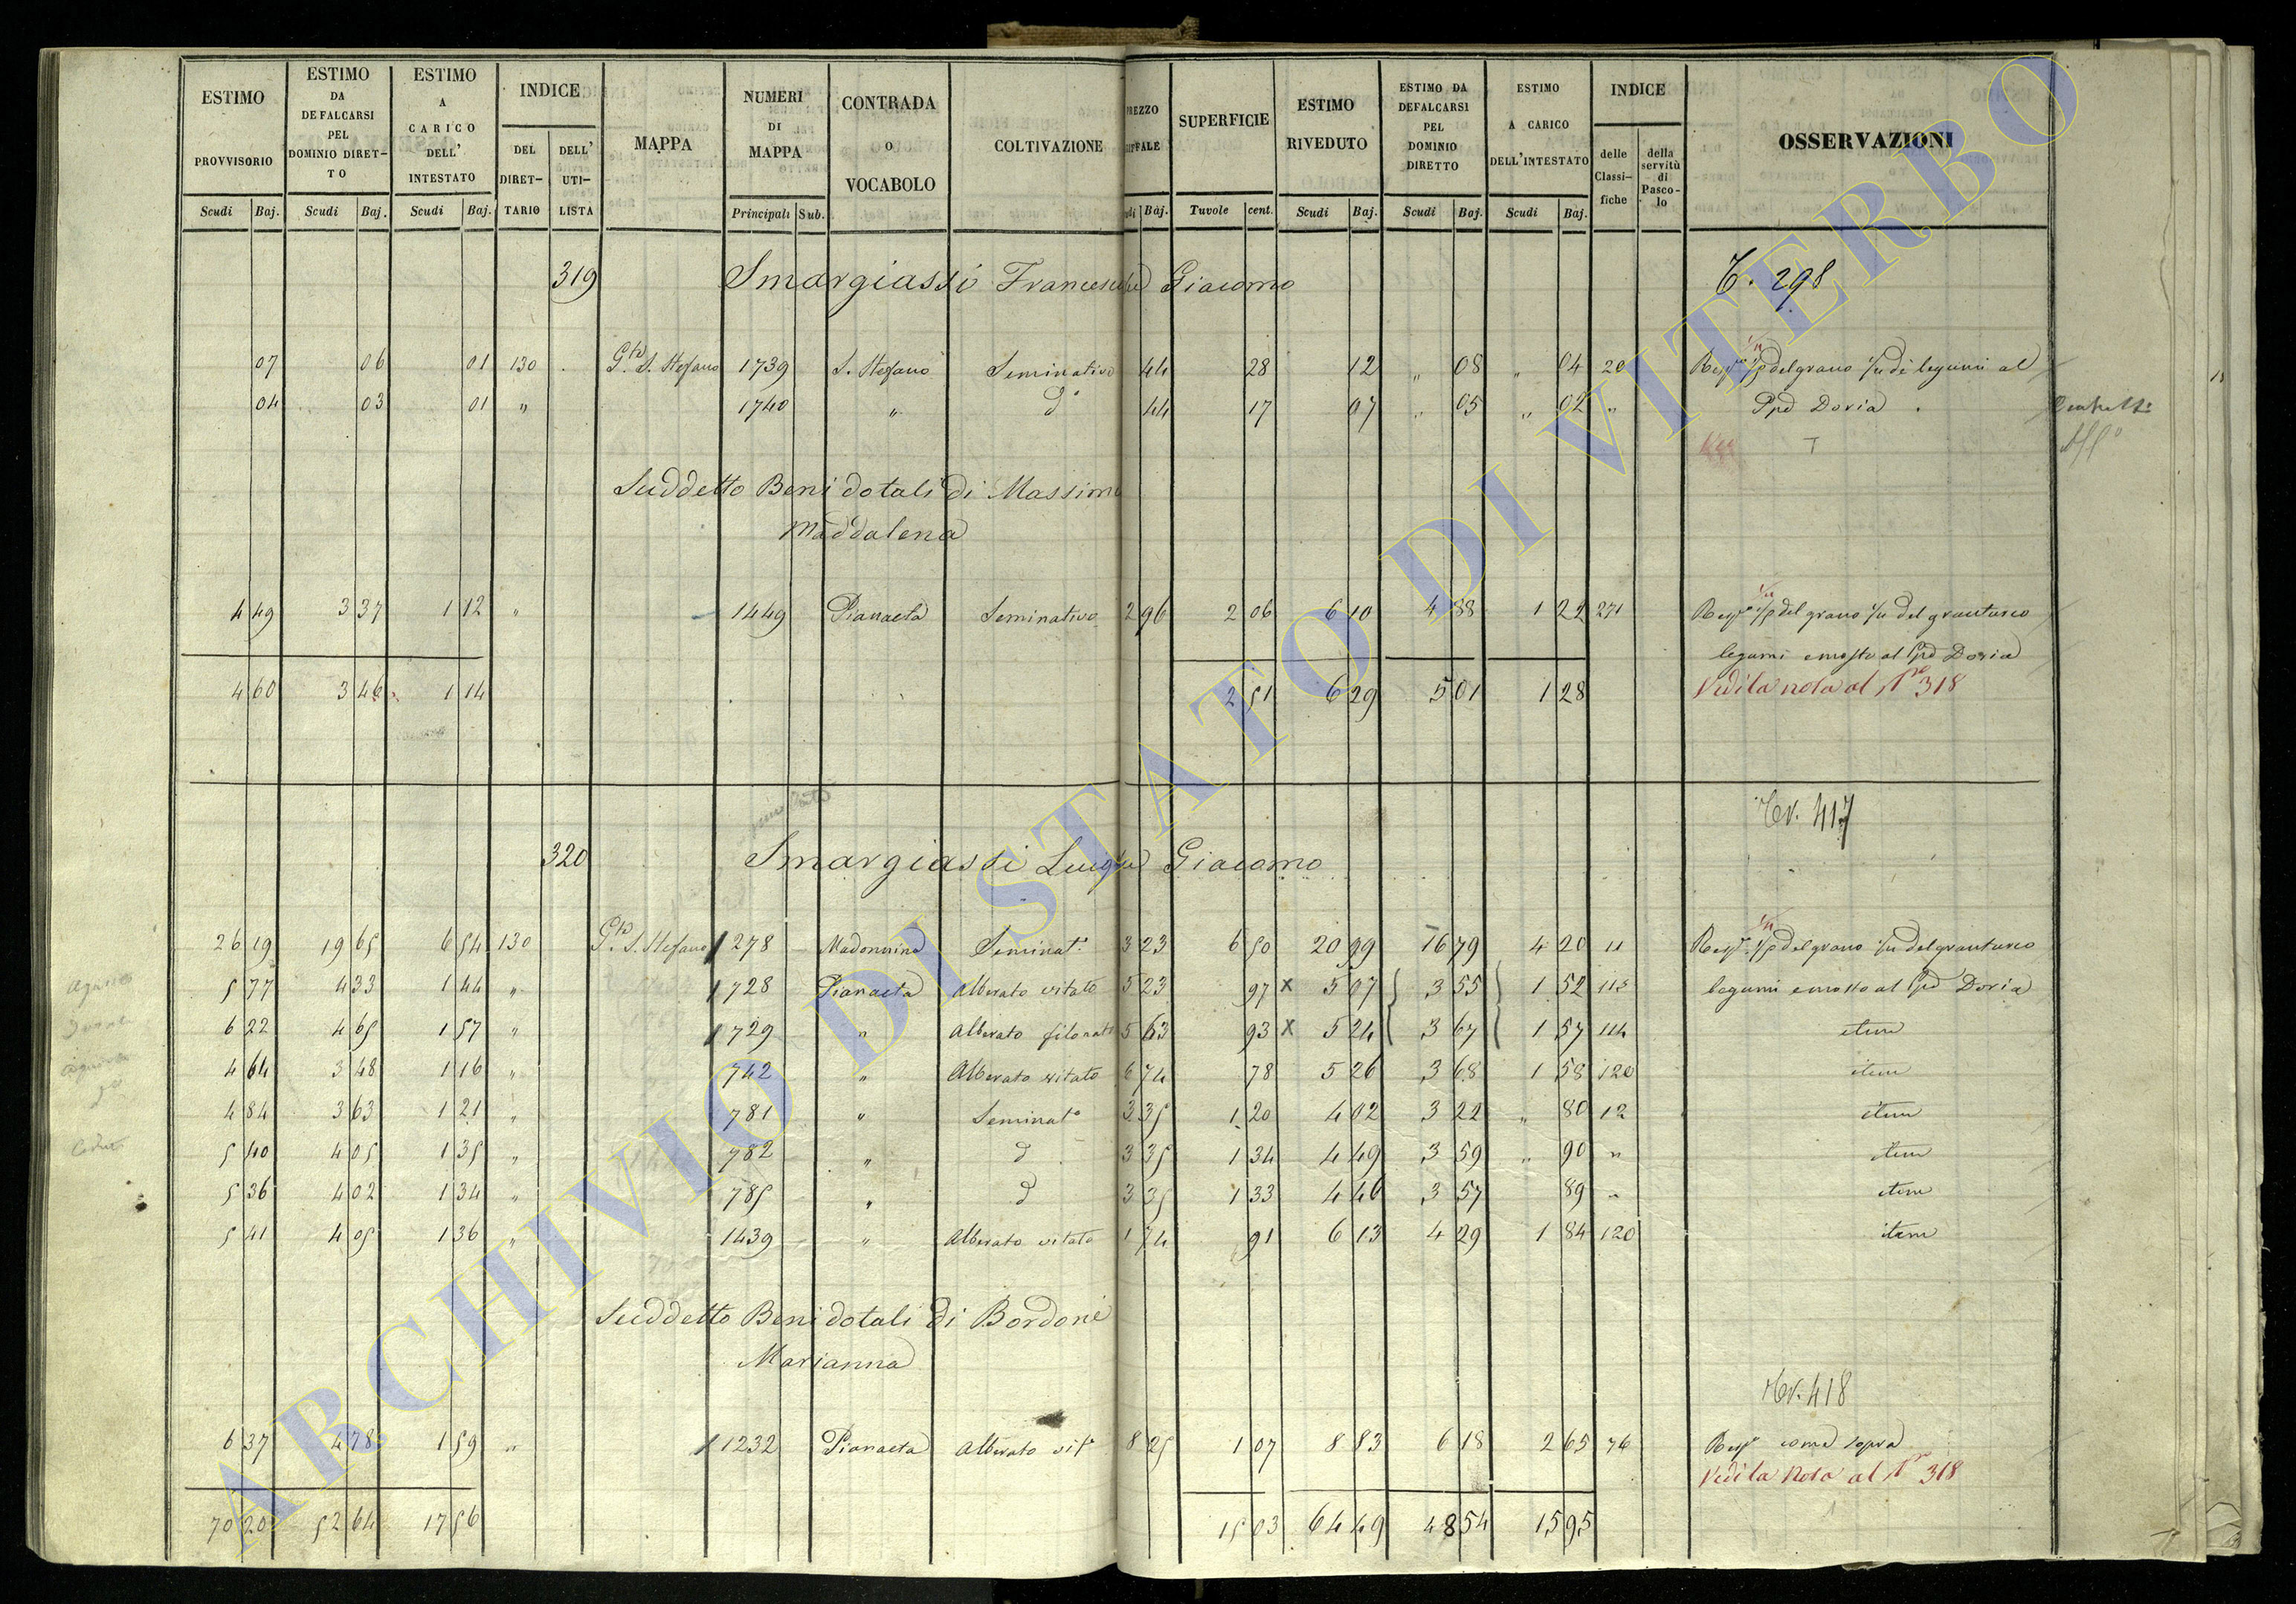 ESTIMO PROVVISORIO Scudi Baj. | ESTIMO DA DEFALCARSI PEL DOMINIO DIRETTO Scudi Baj. | ESTIMO A CARICO DELL' INTESTATO Scudi Baj. | INDICE DEL DIRETTARIO DELL' UTILISTA | MAPPA | NUMERI DI MAPPA Principali Sub. | CONTRADA O VOCABOLO | COLTIVAZIONE | PREZZO Baj. | SUPERFICIE Tavole cent. | ESTIMO RIVEDUTO Scudi Baj. | ESTIMO DA DEFALCARSI PEL DOMINIO DIRETTO Scudi Baj. | ESTIMO A CARICO DELL'INTESTATO Scudi Baj. | INDICE delle Classifiche della servitù di Pascolo | OSSERVAZIONI
319 Smargiassi Francesco Giacomo 298
07 06 01 130 S. Stefano 1739 S. Stefano Seminativo 44 28 12 " 08 " 04 20 del grano di legumi al
04 03 01 " 1740 " d° 44 17 07 " 05 " 02 " Ppe Doria
Suddetto Beni dotali di Massimi
Maddalena
4 49 3 37 1 12 " 1449 Pianaeta Seminativo 2 96 2 06 6 10 4 88 1 22 271 del grano del granturco
legumi e mosto al Ppe Doria
4 60 3 46 1 14 2 51 6 29 5 01 1 28 Vedi la nota al N° 318
417
320 Smargiassi Luigi Giacomo
26 19 19 65 6 54 130 S. Stefano 1278 Madonnina Seminat° 3 23 6 50 20 99 16 79 4 20 11 del grano del granturco
5 77 4 33 1 44 " 1728 Pianaeta Alberato vitato 5 23 97 x 5 07 3 55 1 52 113 legumi e mosto al Ppe Doria
6 22 4 65 1 57 " 1729 " Alberato filonato 5 63 93 x 5 24 3 67 1 57 114 item
4 64 3 48 1 16 " 742 " Alberato vitato 6 74 78 5 26 3 68 1 58 120 item
4 84 3 63 1 21 " 781 " Seminat° 3 35 1 20 4 02 3 22 " 80 12 item
5 40 4 05 1 35 " 782 " d 3 35 1 34 4 49 3 59 " 90 " item
5 36 4 02 1 34 " 785 " d 3 35 1 33 4 46 3 57 89 " item
5 41 4 05 1 36 " 1439 " Alberato vitato 74 91 6 13 4 29 1 84 120 item
Suddetto Beni dotali di Bordoni
Marianna
418
6 37 4 78 1 59 " 1232 Pianaeta Alberato vit° 8 25 1 07 8 83 6 18 2 65 76 come sopra
Vedi la nota al N° 318
70 20 52 64 17 56 15 03 64 49 48 54 15 95
ARCHIVIO DI STATO DI VITERBO